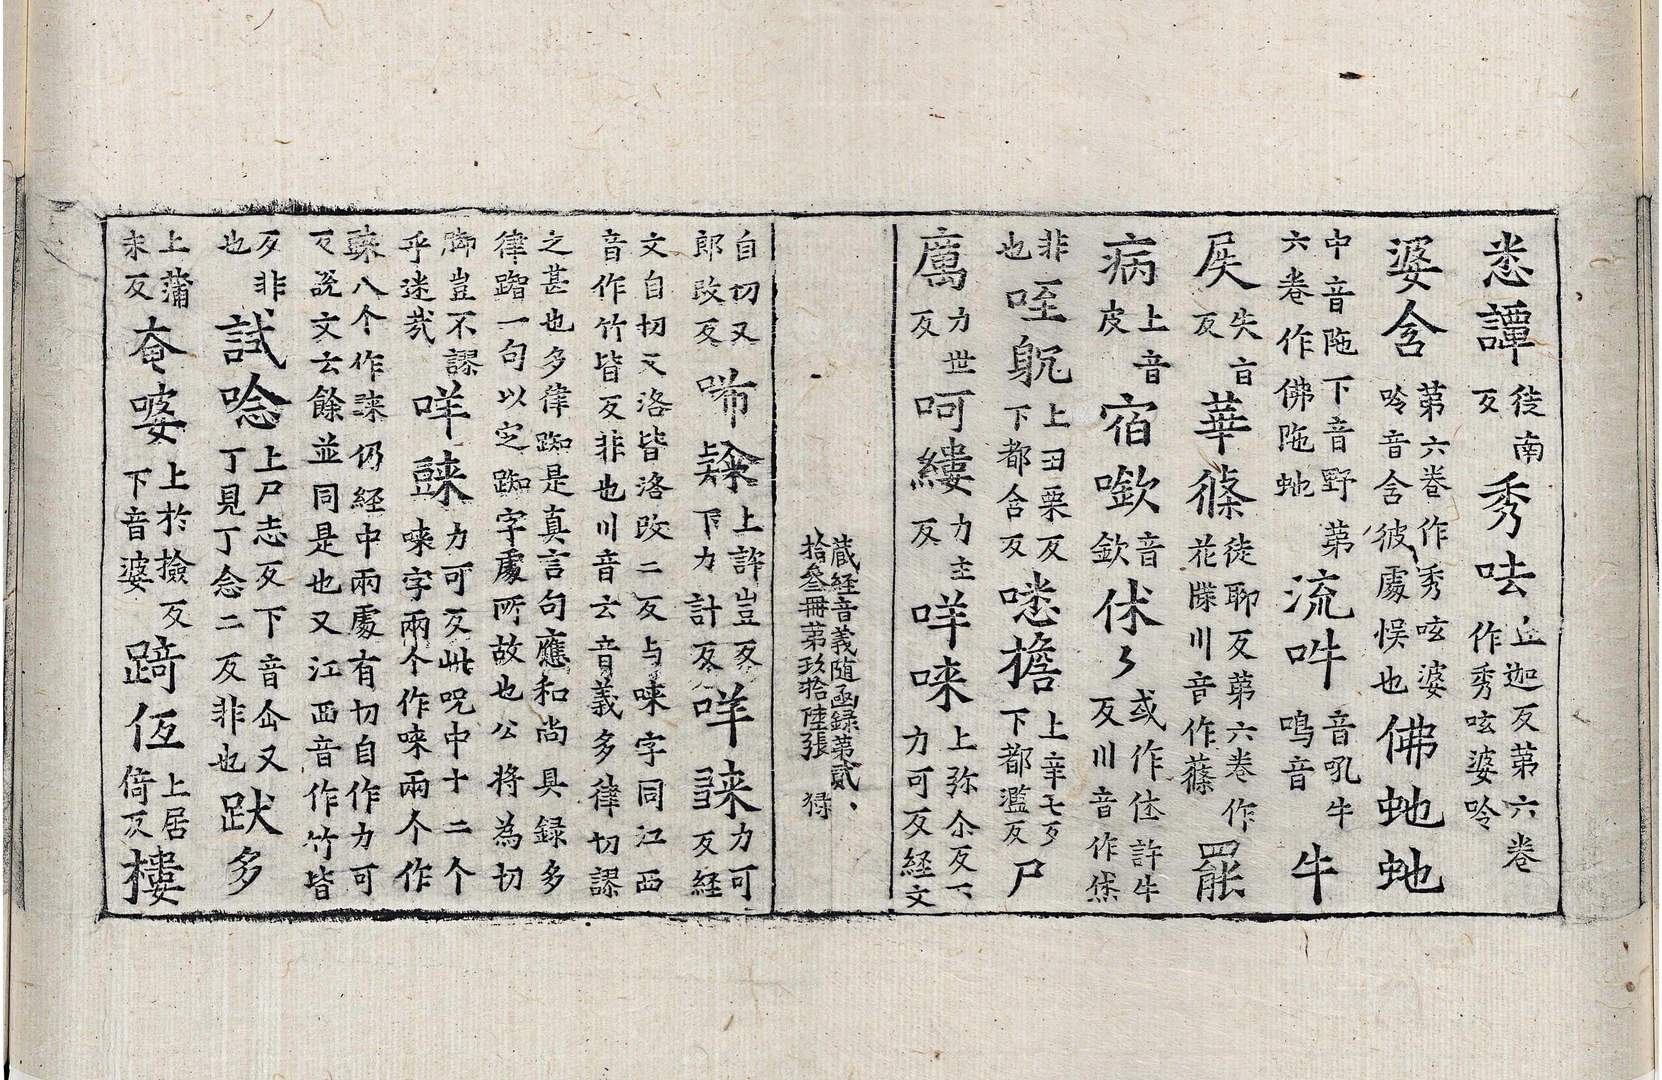 悉譚徒南反秀呿丘迦反第六卷作秀呟婆呤
婆含第六卷作秀呟婆呤音含彼處悞也佛虵虵
中音陁下音野第六卷作佛陁虵流吽音吼牛鳴音牛
屣失旨反華篠徒聊反第六卷作花牒川音作蓧羆
病上音皮宿㘓音欽㤆〻或作㤆許牛反川音作恷
非也咥𨈭上田栗反下都含反㗭擔上辛七反下都濫反尸
厲力世反呵縷力主反哶唻上弥尒反下力可反経文
蔵経音義随函録第貳拾叅冊第玖拾陸張
自切又郎改反唏上許豈反下力計反哶力可反経
文自切又洛皆洛改二反与唻字同江西音作竹皆反非也川音云音義多律切謬
之甚也多律踟是真言句應和尚具録多律踟一句以定踟字處所故也公將為切
脚豈不謬乎迷㢤哶力可反此呪中十二个唻字兩个作唻兩个作
八个作仍経中兩處有切自作力可反說文云餘並同是也又江西音作竹皆
反非也試唸上尸志反下音㑒又丁見丁念二反非也跃多
上蒲末反奄婆上於撿反下音婆踦㐰上居倚反樓